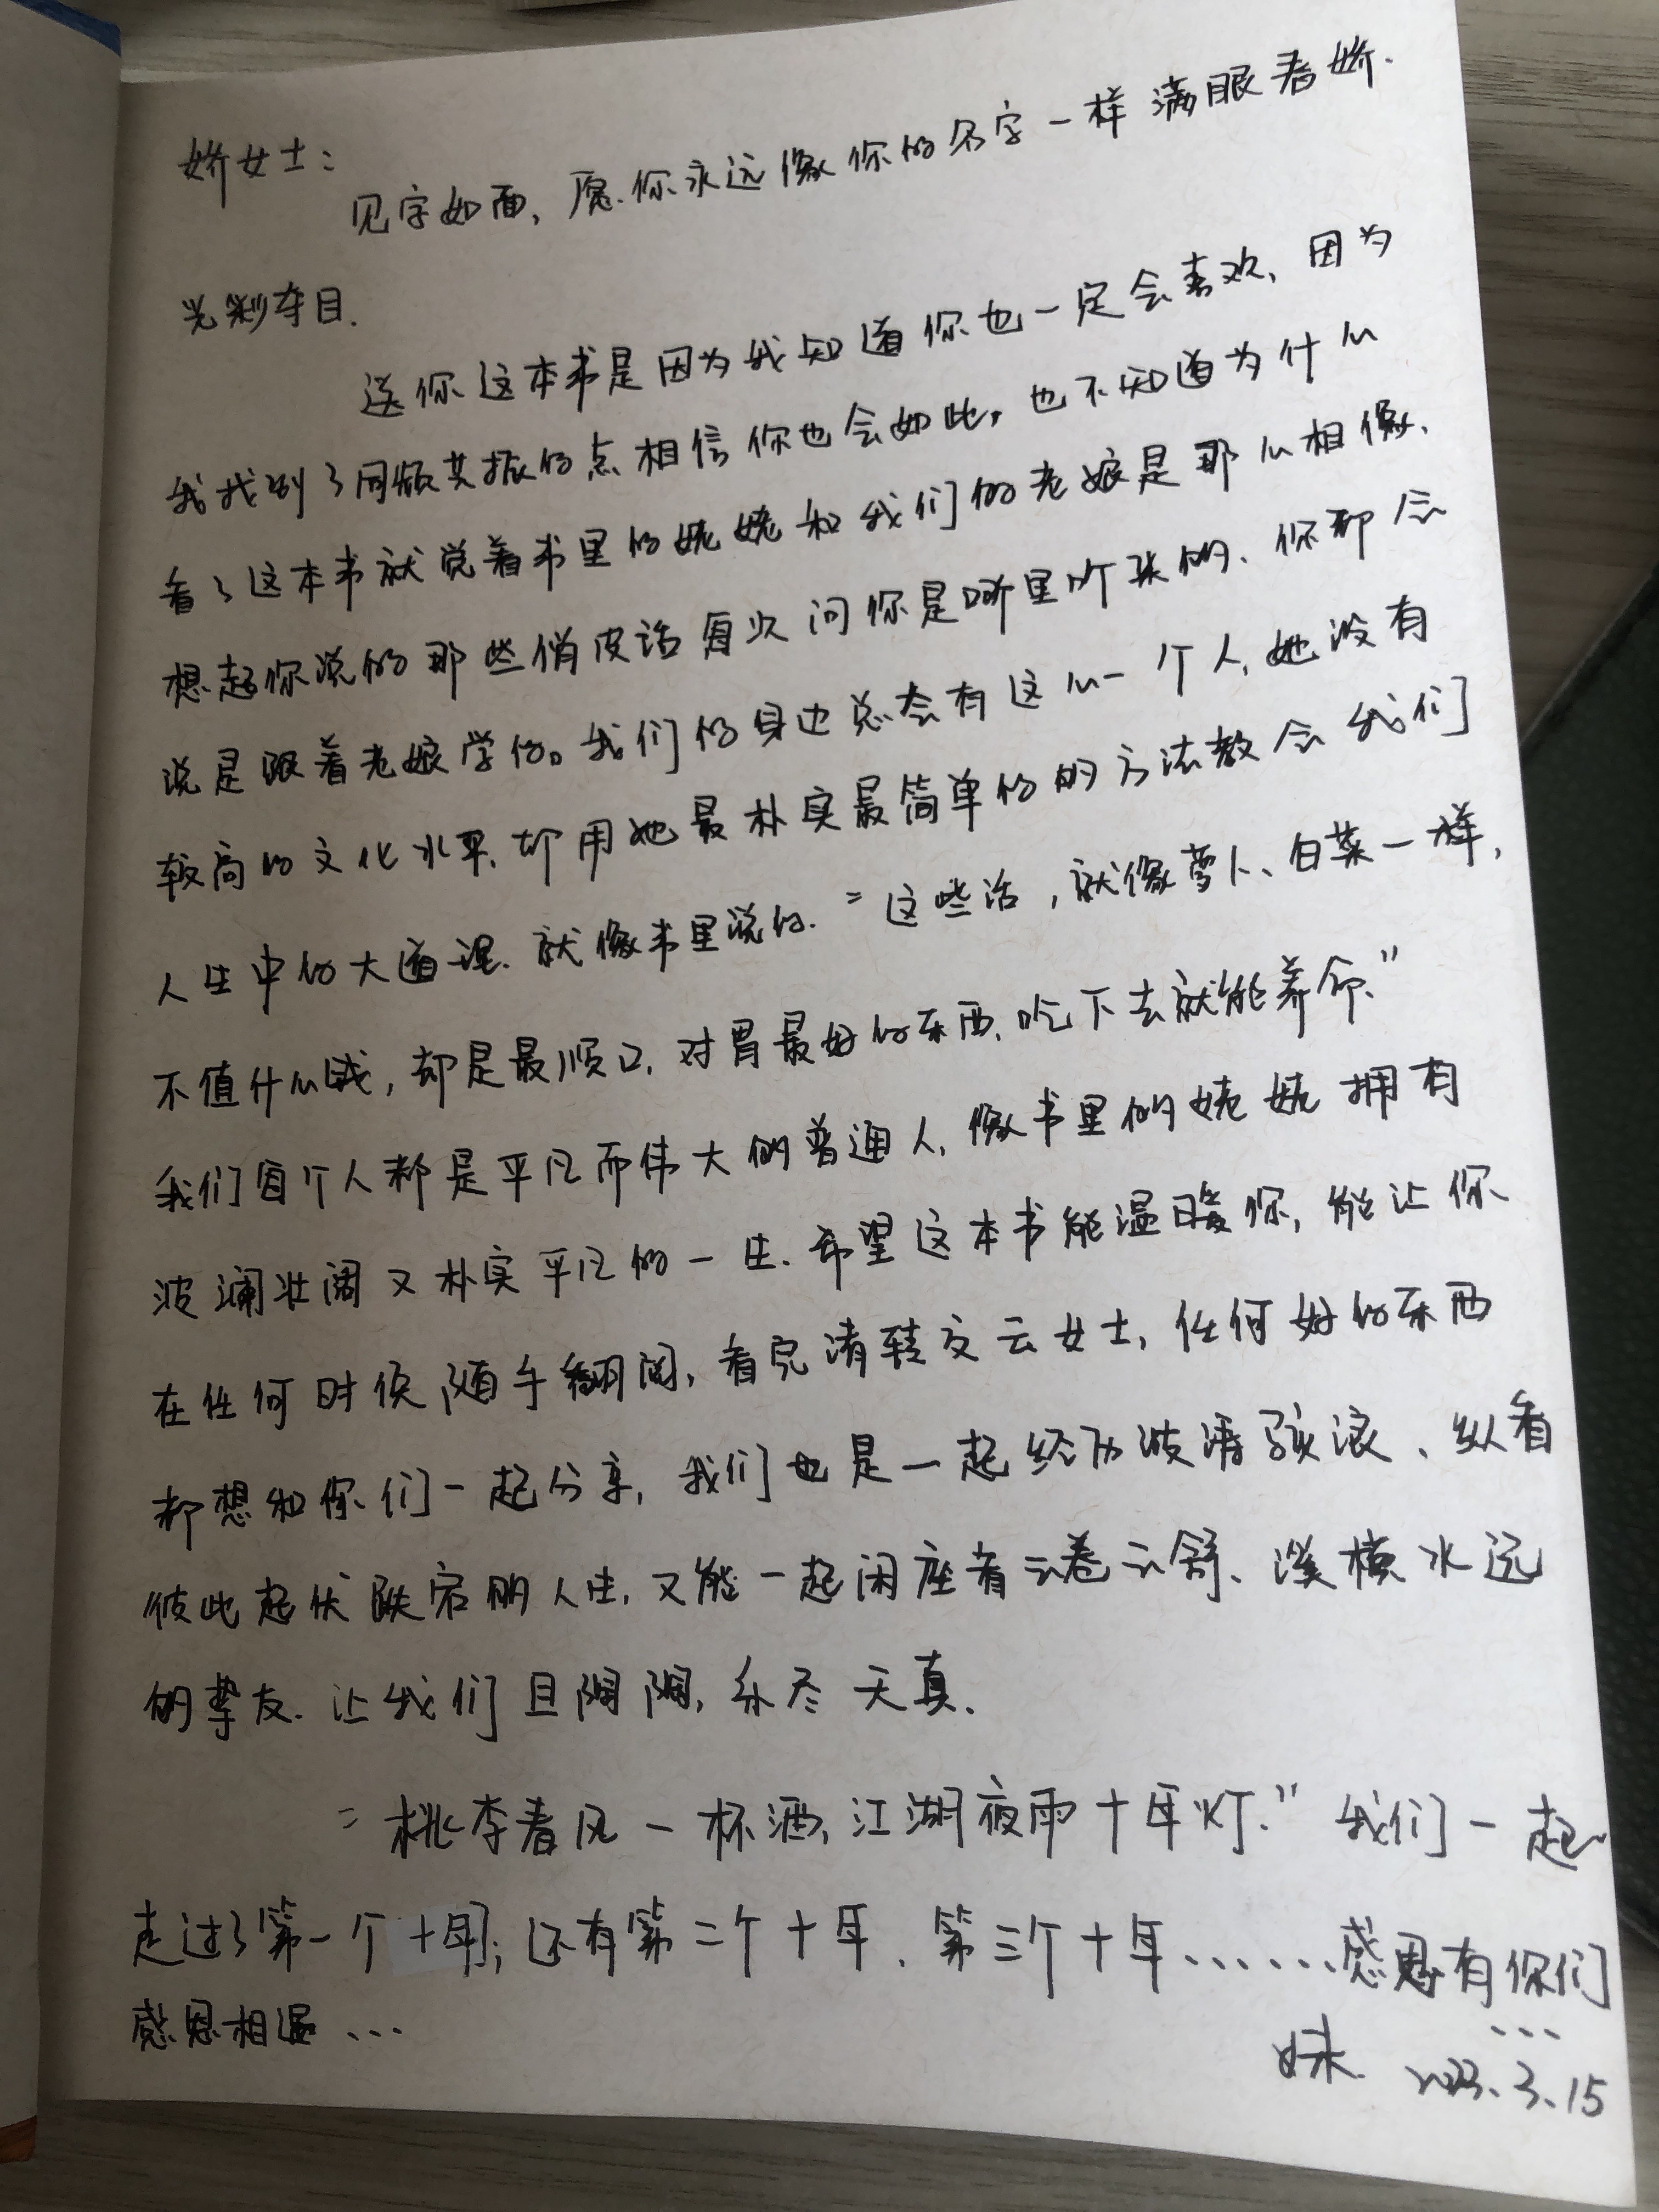 娇女士：
见字如面，愿你永远像你的名字一样满眼春娇.
光彩夺目.
送你这本书是因为我知道你也一定会喜欢，因为
我找到了同频共振的点相信你也会如此，也不知道为什么
看了这本书就觉着书里的姥姥和我们的老娘是那么相像.
想起你说的那些俏皮话每次问你是哪里听来的、你都会
说是跟着老娘学的。我们的身边总会有这么一个人，她没有
较高的文化水平，却用她最朴实最简单的的方法教会我们
人生中的大道理. 就像书里说的. "这些话，就像萝卜、白菜一样，
不值什么钱，却是最顺口，对胃最好的东西，吃下去就能养命."
我们每个人都是平凡而伟大的普通人，像书里的姥姥拥有
波澜壮阔又朴实平凡的一生. 希望这本书能温暖你，能让你
在任何时候随手翻阅，看完请转交云女士，任何好的东西
都想和你们一起分享，我们也是一起经历波涛骇浪、纵看
彼此起伏跌宕的人生，又能一起闲座看云卷云舒、溪横水远
的挚友. 让我们且陶陶，乐尽天真.
"桃李春风一杯酒，江湖夜雨十年灯." 我们一起
走过了第一个十年；还有第二个十年、第三个十年......感恩有你们
感恩相遇... ...
妹. 2023.3.15